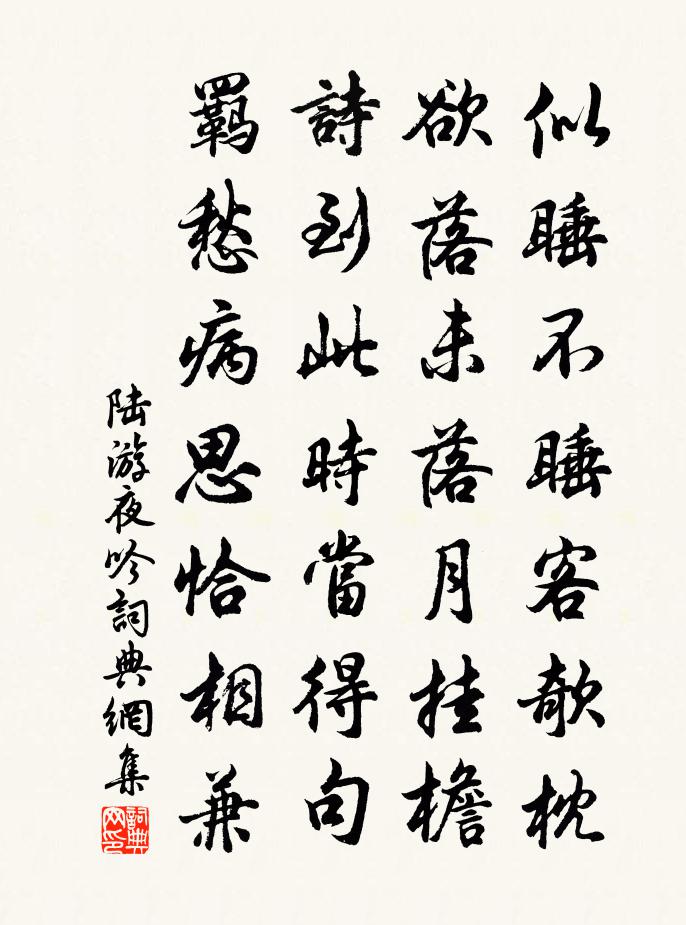 似睡不睡客欹枕
欲落未落月挂檐
詩到此時當得句
羇愁病思恰相兼
陆游夜吟詞典網集
詞典网印